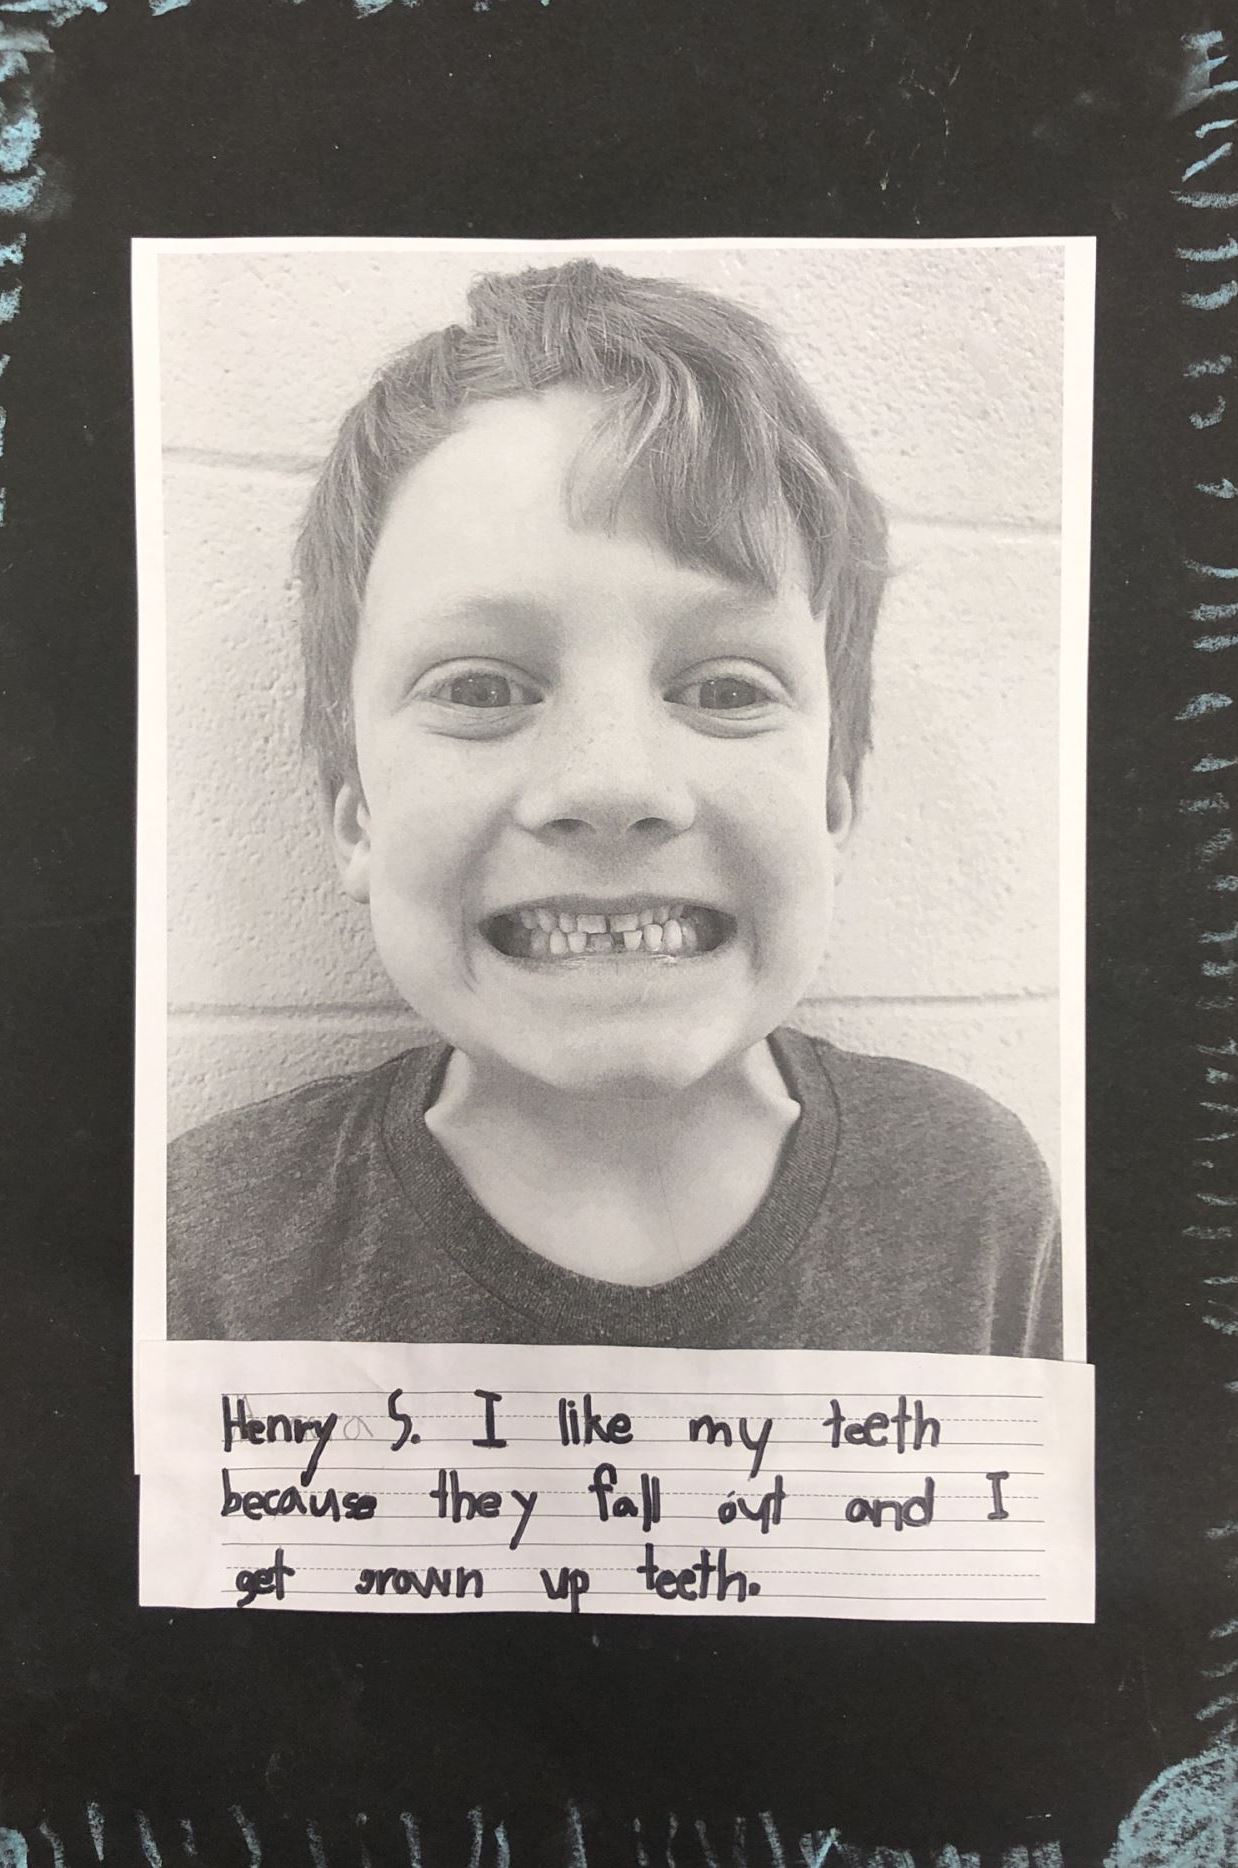 Henry S. I like my teeth
because they fall out and I
get grown up teeth.